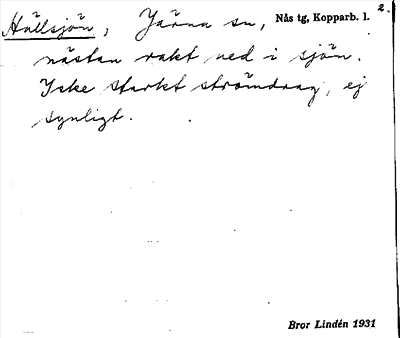 2.
Hällsjön, Järna sn, Nås tg, Kopparb. l.
nästan rakt ned i sjön.
Icke starkt strömdrag, ej
synligt.
Bror Lindén 1931